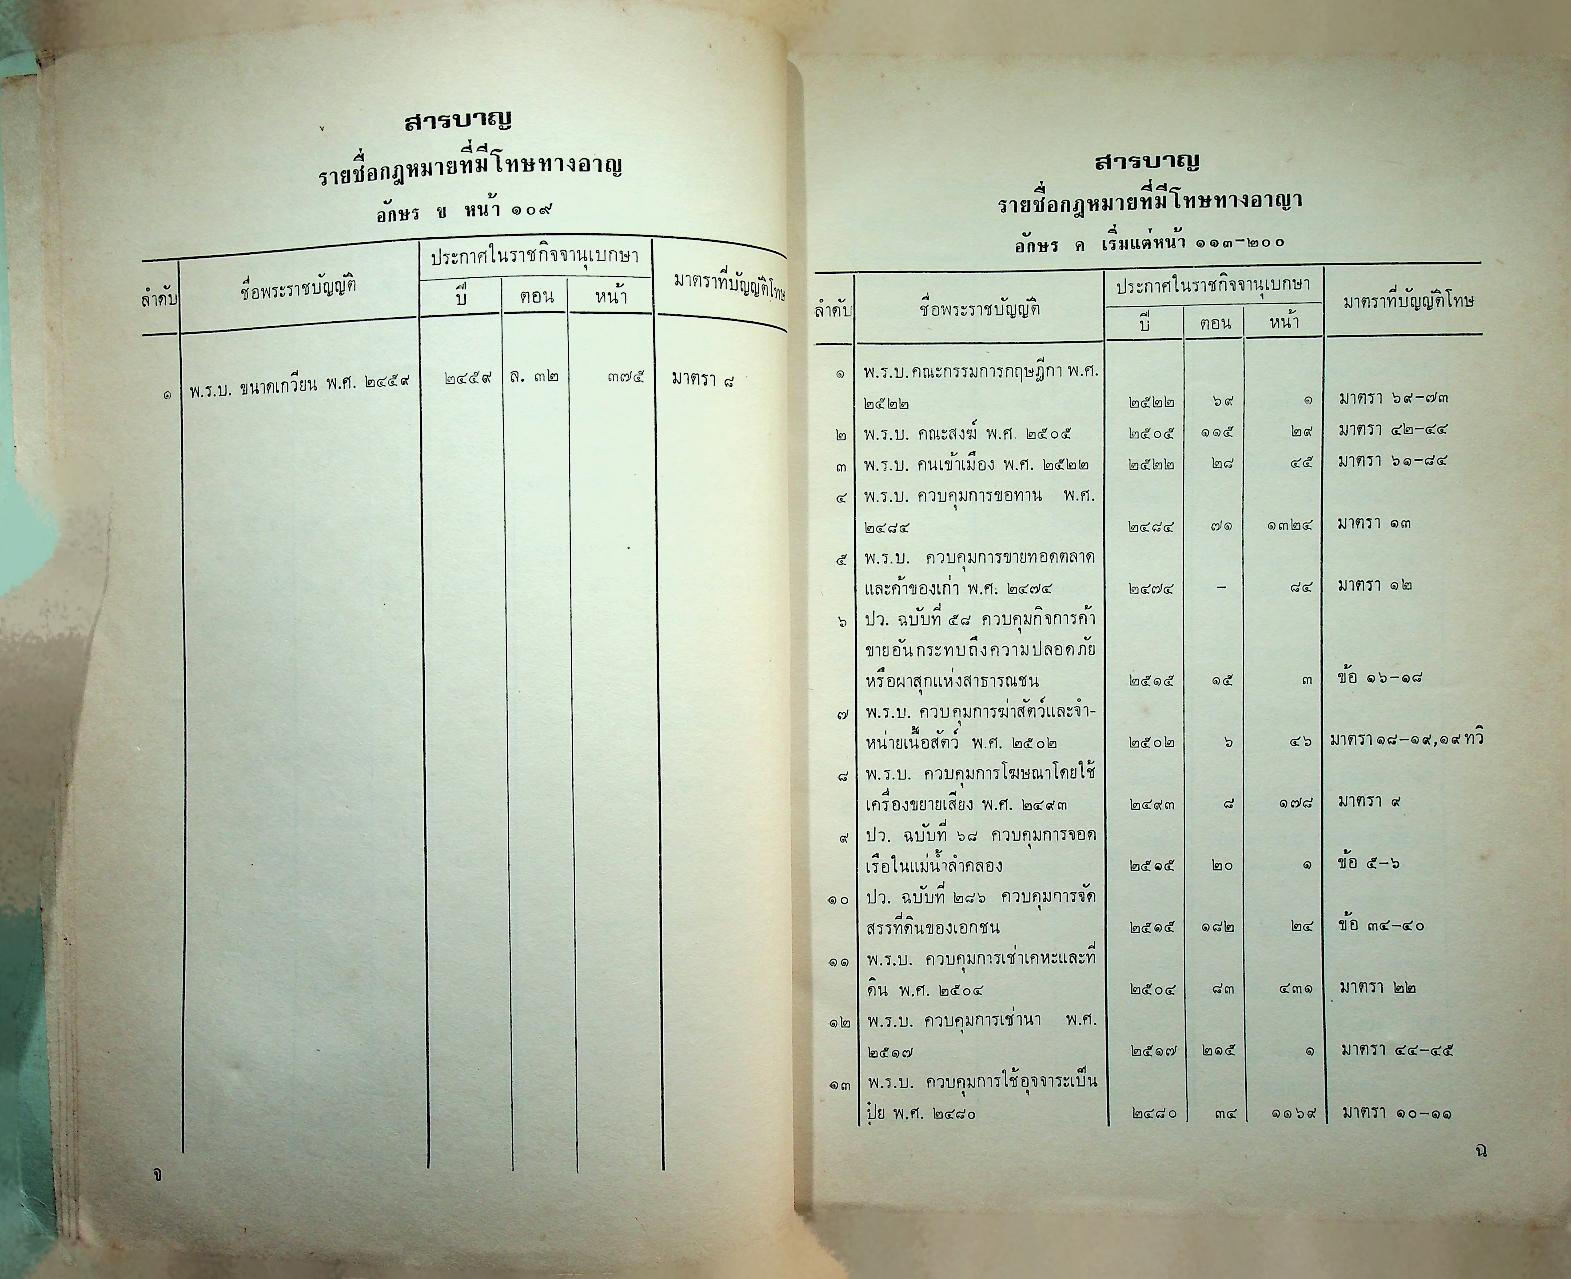 สารบาญ
รายชื่อกฎหมายที่มีโทษทางอาญ
อักษร ข หน้า ๑๐๙
ลำดับ ชื่อพระราชบัญญัติ ประกาศในราชกิจจานุเบกษา มาตราที่บัญญัติโทษ
ปี ตอน หน้า
๑ พ.ร.บ. ขนาดเกวียน พ.ศ. ๒๔๕๙ ๒๔๕๙ ล. ๓๒ ๓๗๕ มาตรา ๘
จ
สารบาญ
รายชื่อกฎหมายที่มีโทษทางอาญา
อักษร ค เริ่มแต่หน้า ๑๑๓-๒๐๐
ลำดับ ชื่อพระราชบัญญัติ ประกาศในราชกิจจานุเบกษา มาตราที่บัญญัติโทษ
ปี ตอน หน้า
๑ พ.ร.บ. คณะกรรมการกฤษฎีกา พ.ศ.
๒๕๒๒ ๒๕๒๒ ๖๙ ๑ มาตรา ๖๙-๗๓
๒ พ.ร.บ. คณะสงฆ์ พ.ศ. ๒๕๐๕ ๒๕๐๕ ๑๑๕ ๒๙ มาตรา ๔๒-๔๔
๓ พ.ร.บ. คนเข้าเมือง พ.ศ. ๒๕๒๒ ๒๕๒๒ ๒๘ ๔๕ มาตรา ๖๑-๘๔
๔ พ.ร.บ. ควบคุมการขอทาน พ.ศ.
๒๔๘๔ ๒๔๘๔ ๗๑ ๑๓๒๔ มาตรา ๑๓
๕ พ.ร.บ. ควบคุมการขายทอดตลาด
และค้าของเก่า พ.ศ. ๒๔๗๔ ๒๔๗๔ - ๘๔ มาตรา ๑๒
๖ ปว. ฉบับที่ ๕๘ ควบคุมกิจการค้า
ขายอันกระทบถึงความปลอดภัย
หรือผาสุกแห่งสาธารณชน ๒๕๑๕ ๑๕ ๓ ข้อ ๑๖-๑๘
๗ พ.ร.บ. ควบคุมการฆ่าสัตว์และจำ-
หน่ายเนื้อสัตว์ พ.ศ. ๒๕๐๒ ๒๕๐๒ ๖ ๔๖ มาตรา ๑๘-๑๙,๑๙ ทวิ
๘ พ.ร.บ. ควบคุมการโฆษณาโดยใช้
เครื่องขยายเสียง พ.ศ. ๒๔๙๓ ๒๔๙๓ ๘ ๑๗๘ มาตรา ๙
๙ ปว. ฉบับที่ ๖๘ ควบคุมการจอด
เรือในแม่น้ำลำคลอง ๒๕๑๕ ๒๐ ๑ ข้อ ๕-๖
๑๐ ปว. ฉบับที่ ๒๘๖ ควบคุมการจัด
สรรที่ดินของเอกชน ๒๕๑๕ ๑๘๒ ๒๔ ข้อ ๓๔-๔๐
๑๑ พ.ร.บ. ควบคุมการเช่าเคหะและที่
ดิน พ.ศ. ๒๕๐๔ ๒๕๐๔ ๘๓ ๔๓๑ มาตรา ๒๒
๑๒ พ.ร.บ. ควบคุมการเช่านา พ.ศ.
๒๕๑๗ ๒๕๑๗ ๒๑๕ ๑ มาตรา ๔๔-๔๕
๑๓ พ.ร.บ. ควบคุมการใช้อุจจาระเป็น
ปุ๋ย พ.ศ. ๒๔๘๐ ๒๔๘๐ ๓๔ ๑๑๖๙ มาตรา ๑๐-๑๑
ฉ